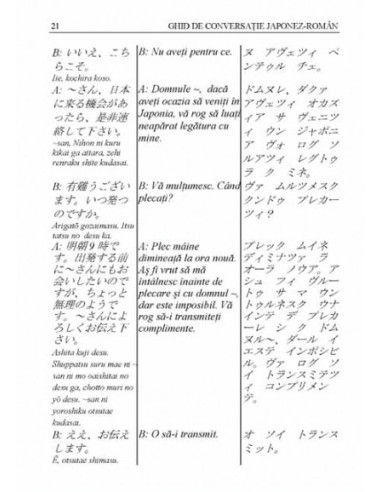 21 GHID DE CONVERSAŢIE JAPONEZ-ROMÂN
B: いいえ、こち
らこそ。
Iie, kochira koso.
B: Nu aveţi pentru ce.
ヌ アヴェツィ ペ
ンテゥル チェ。
A: ～さん、日本
に来る機会があ
ったら、是非連
絡して下さい。
~san, Nihon ni kuru
kikai ga attara, zehi
renraku shite kudasai.
A: Domnule ~, dacă
aveţi ocazia să veniţi în
Japonia, vă rog să luaţi
neapărat legătura cu
mine.
ドムヌレ、ダクァ
アヴェツィ オカズ
ィア サ ヴェニツ
ィ ウン ジャポニ
ア ヴォ ログ ソ
ルアツィ レグトゥ
ラ ク ミネ。
B: 有難うござい
ます。いつ発つ
のですか。
Arigatō gozaimasu. Itsu
tatsu no desu ka.
B: Vă mulţumesc. Când
plecaţi?
ヴァ ムルツメスク
クンドゥ プレカー
ツィ？
A: 明朝9時で
す。出発する前
に～さんにもお
会いしたいので
すが、ちょっと
無理のようで
す。～さんによ
ろしくお伝え下
さい。
Ashita kuji desu.
Shuppatsu suru mae ni ~
san ni mo oaishitai no
desu ga, chotto muri no
yō desu. ~san ni
yoroshiku otsutae
kudasai.
A: Plec mâine
dimineaţă la ora nouă.
Aş fi vrut să mă
întâlnesc înainte de
plecare şi cu domnul ~,
dar este imposibil. Vă
rog să-i transmiteţi
complimente.
プレック ムイネ
ディミナツァ ラ
オーラ ノウア。ア
シュ フィ ヴルー
トゥ サ マ ウン
トゥルネスク ウナ
インテ デ プレカ
ーレ シ ク ドム
ヌル～、ダール イ
エステ インポシビ
ル。ヴァ ログ ソ
イ トランスミテツ
ィ コンプリメン
テ。
B: ええ、お伝え
します。
Ē, otsutae shimasu.
B: O să-i transmit.
オ ソイ トランス
ミット。